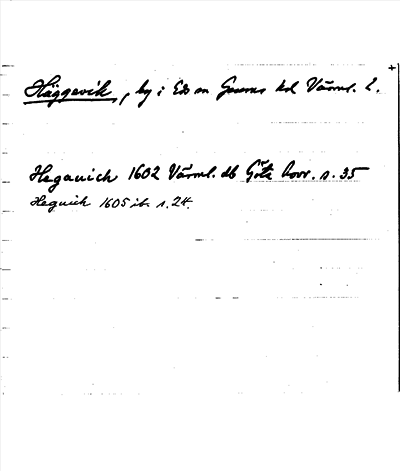 Häggevik, by i Eds sn Grums hd Värml. l.
Hegauich 1602 Värml. db Göta hovr. s. 35
Heguich 1605 ib. s. 24.